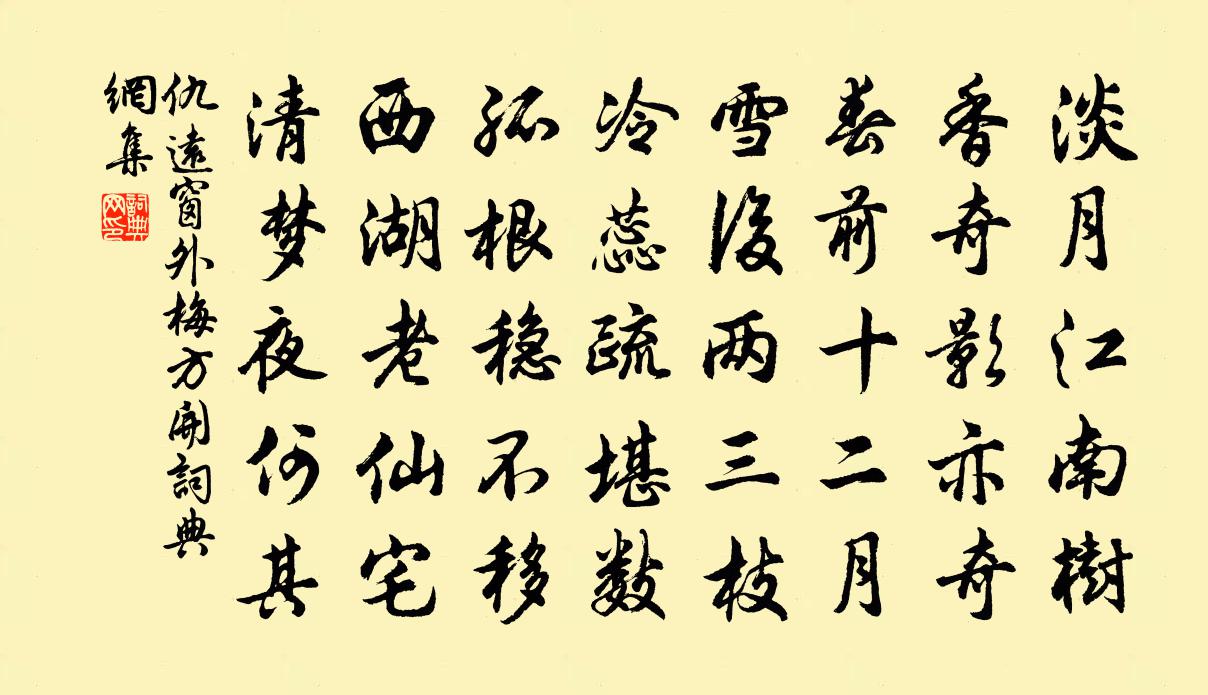 淡月江南樹
香奇影亦奇
春前十二月
雪後两三枝
冷蕊疏堪数
孤根稳不移
西湖老仙宅
清梦夜何其
仇遠窗外梅方開詞典
網集
詞典网印